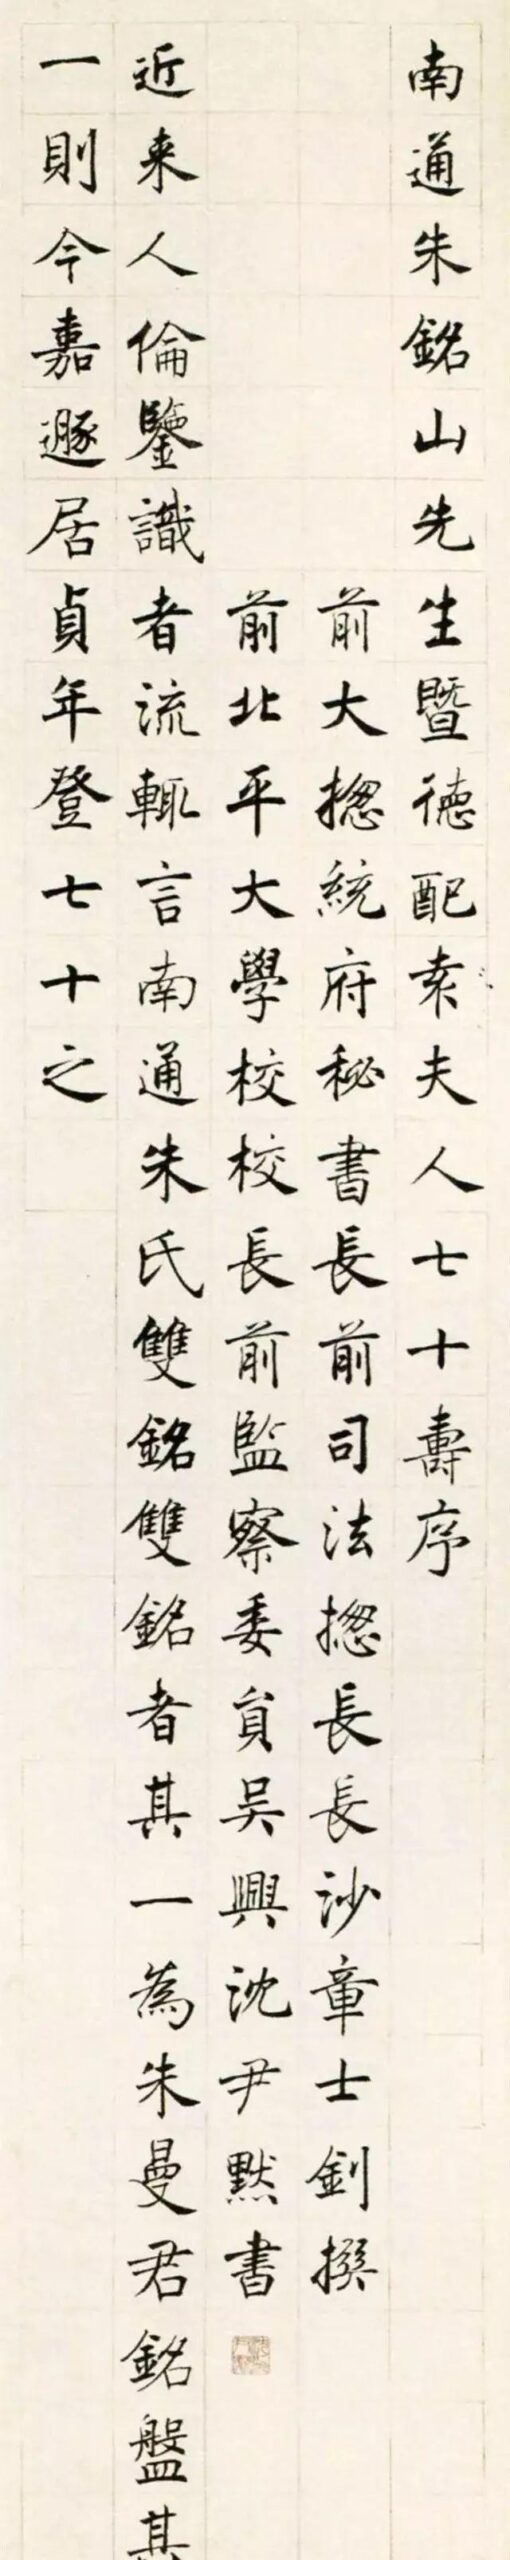 南通朱銘山先生暨德配袁夫人七十壽序
前大揔統府秘書長前司法揔長長沙章士釗撰
前北平大學校校長前監察委員吳興沈尹默書
近来人倫鑒識者流輒言南通朱氏雙銘雙銘者其一為朱曼君銘盤其
一則今嘉遯居貞年登七十之